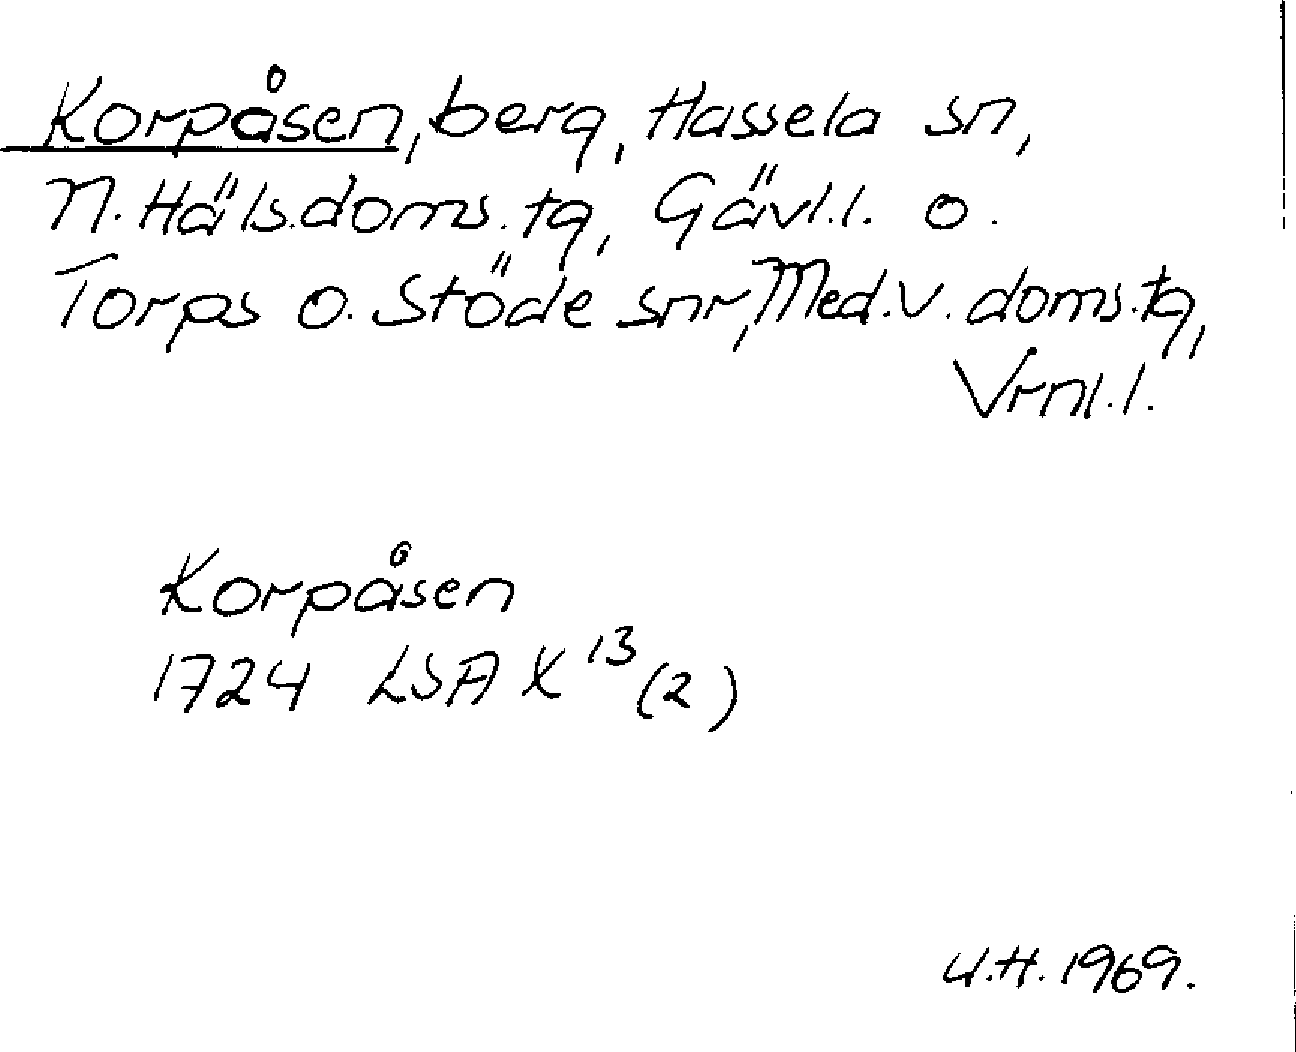 Korpåsen, berg, Hassela sn,
N. Häls. doms. tg, Gävl.l. o.
Torps o. Stöde snr, Med. v. doms. tg,
Vrnl.l.
Korpåsen
1724 LSA X 13 (2)
U.H. 1969.